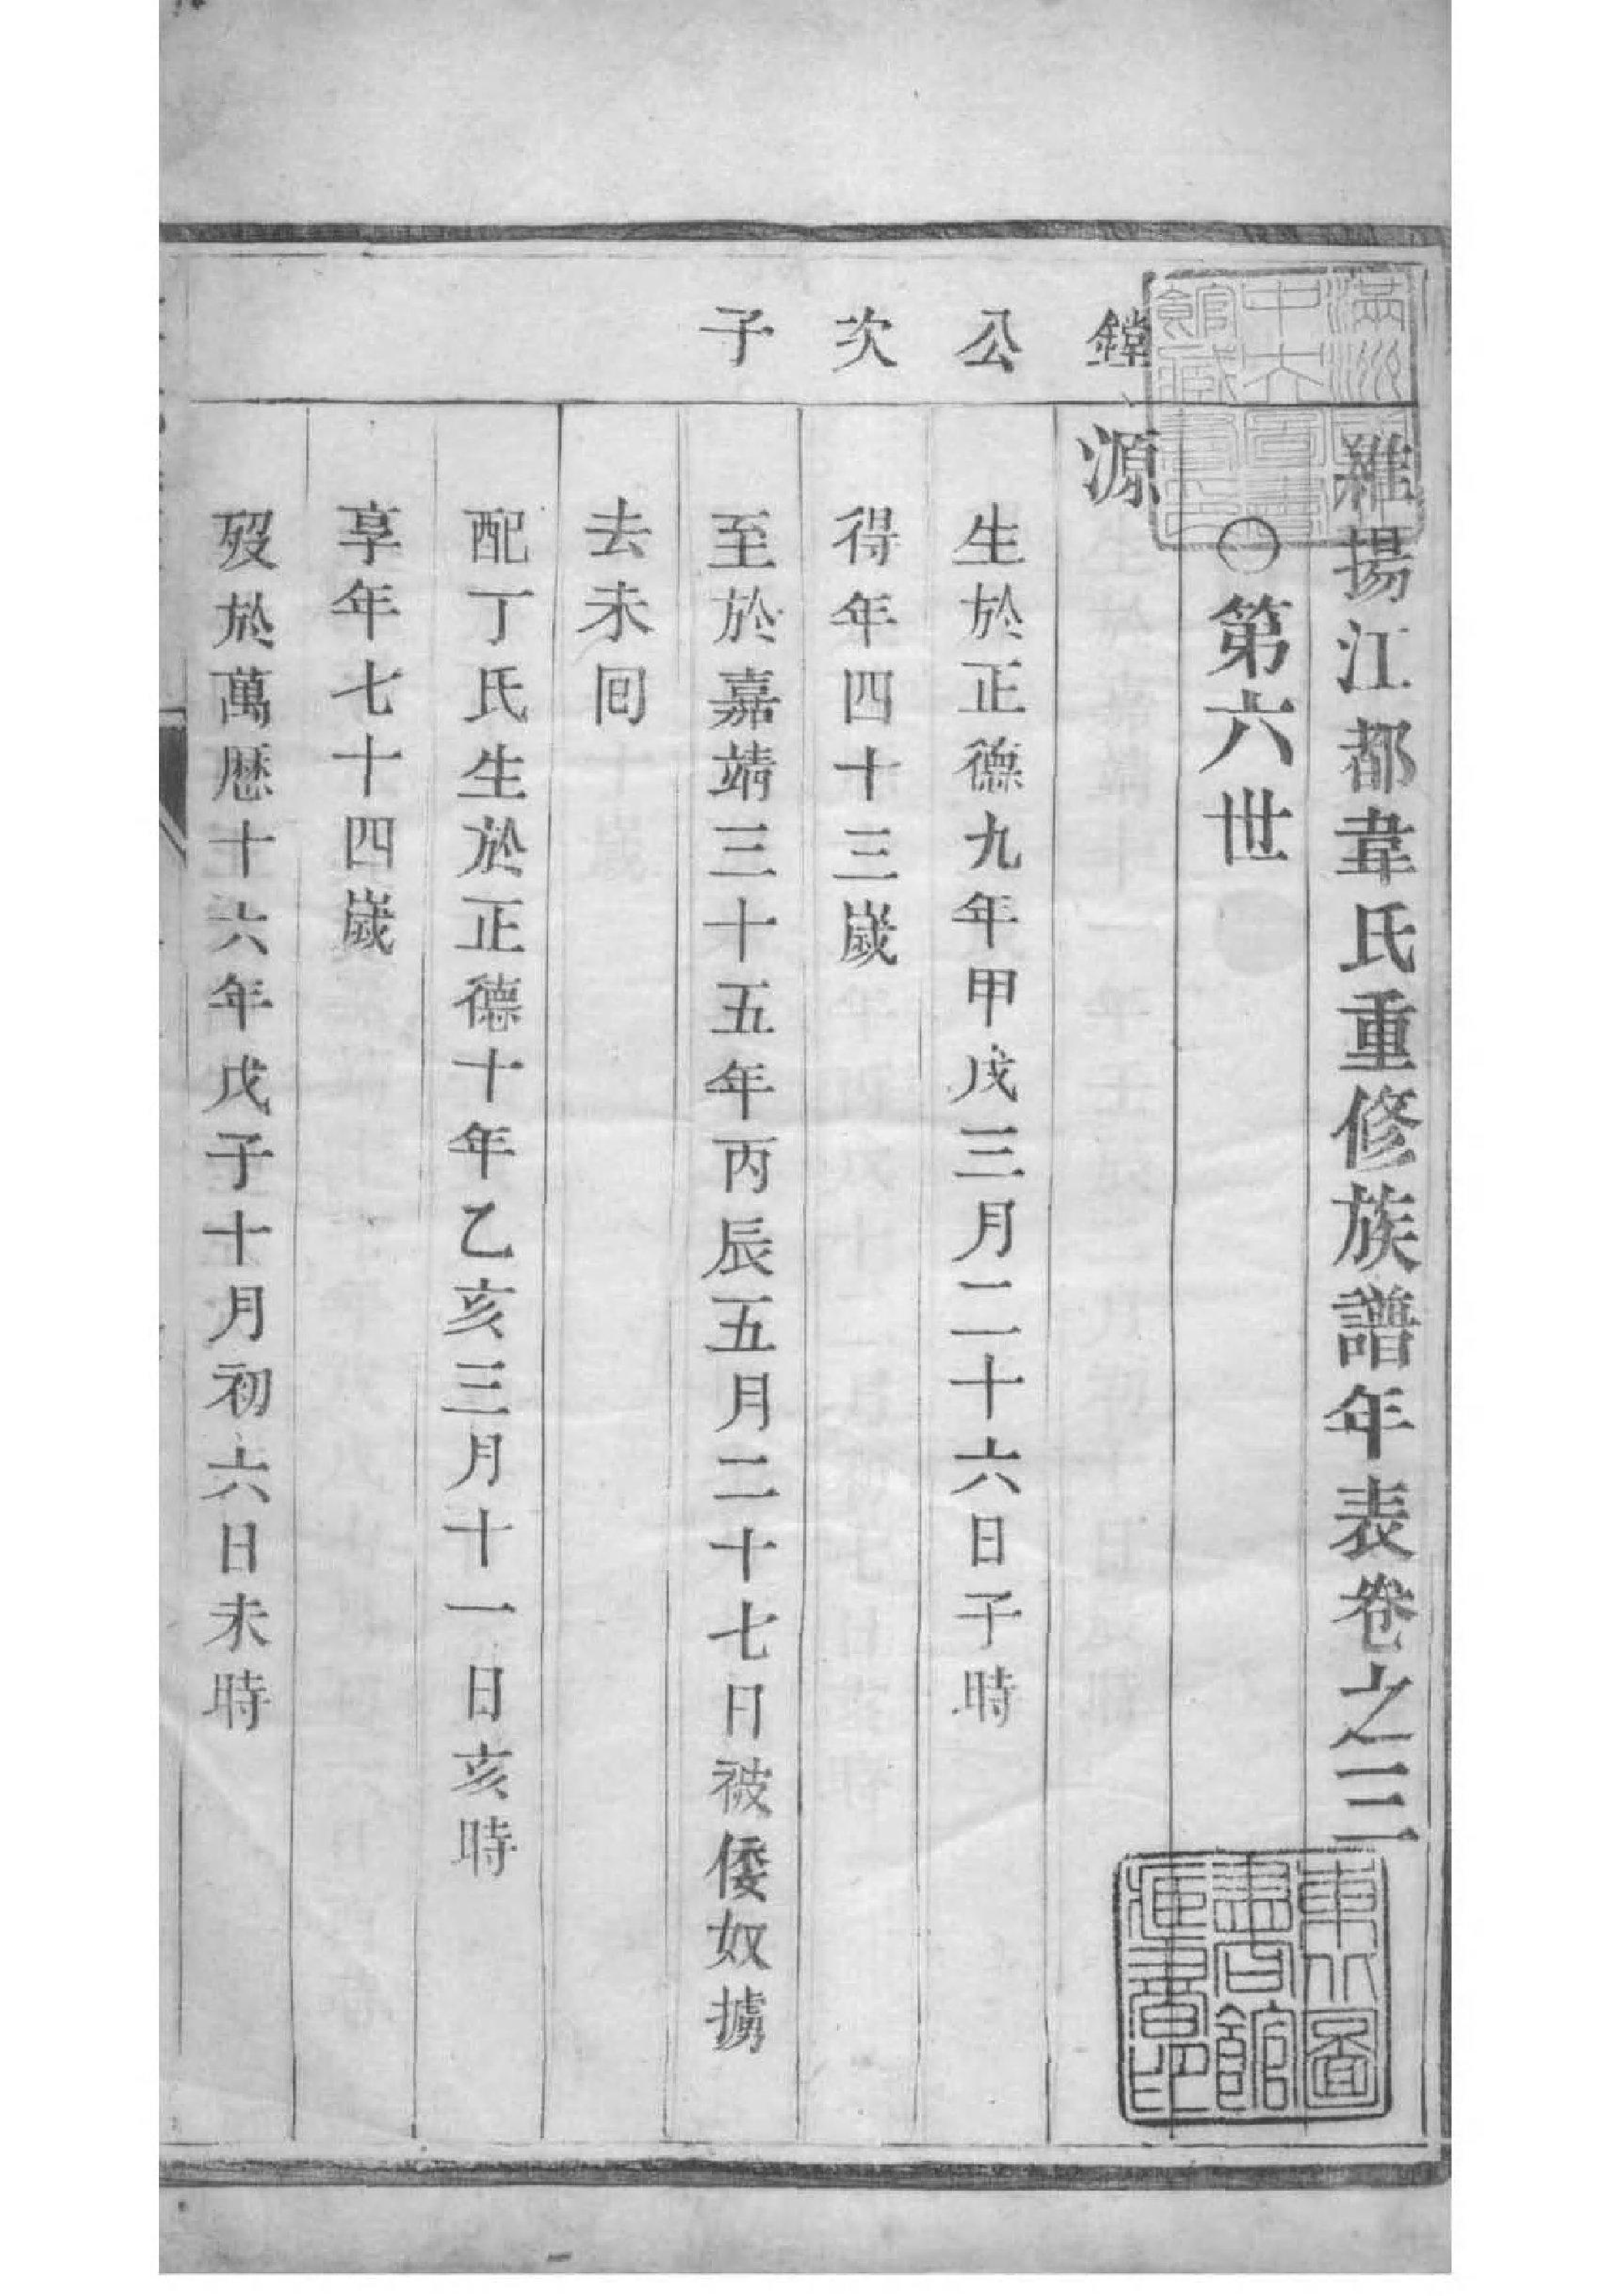 維揚江都韋氏重修族譜年表卷之三
〇第六世
鏜公次子
源
生於正德九年甲戌三月二十六日子時
得年四十三歲
至於嘉靖三十五年丙辰五月二十七日被倭奴擄
去未回
配丁氏生於正德十年乙亥三月十一日亥時
享年七十四歲
歿於萬歷十六年戊子十月初六日未時
東北圖
書館
所藏書印